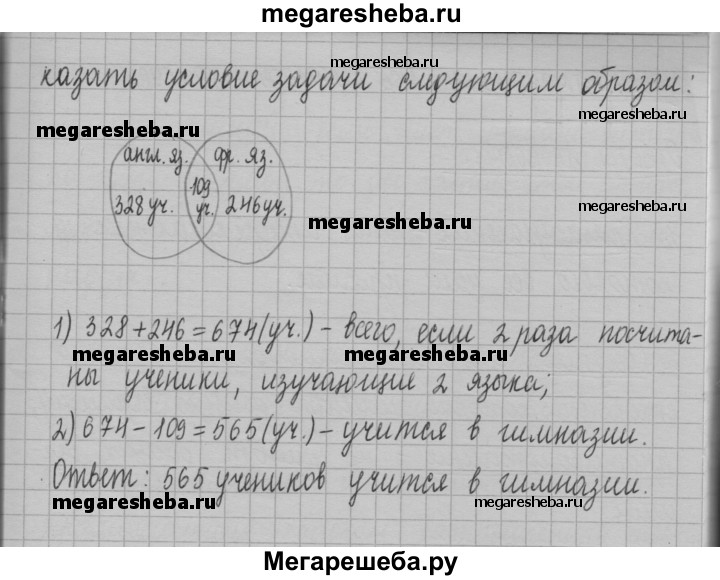 megaresheba.ru
megaresheba.ru
казать условие задачи следующим образом:
megaresheba.ru
megaresheba.ru
англ. яз. фр. яз.
328 уч. 109 уч. 246 уч.
megaresheba.ru
megaresheba.ru
1) 328+246=674(уч.) - всего, если 2 раза посчита-
megaresheba.ru megaresheba.ru
ны ученики, изучающие 2 языка;
2) 674-109=565(уч.) - учится в гимназии.
Ответ: 565 учеников учится в гимназии.
megaresheba.ru megaresheba.ru
Мегарешеба.ру